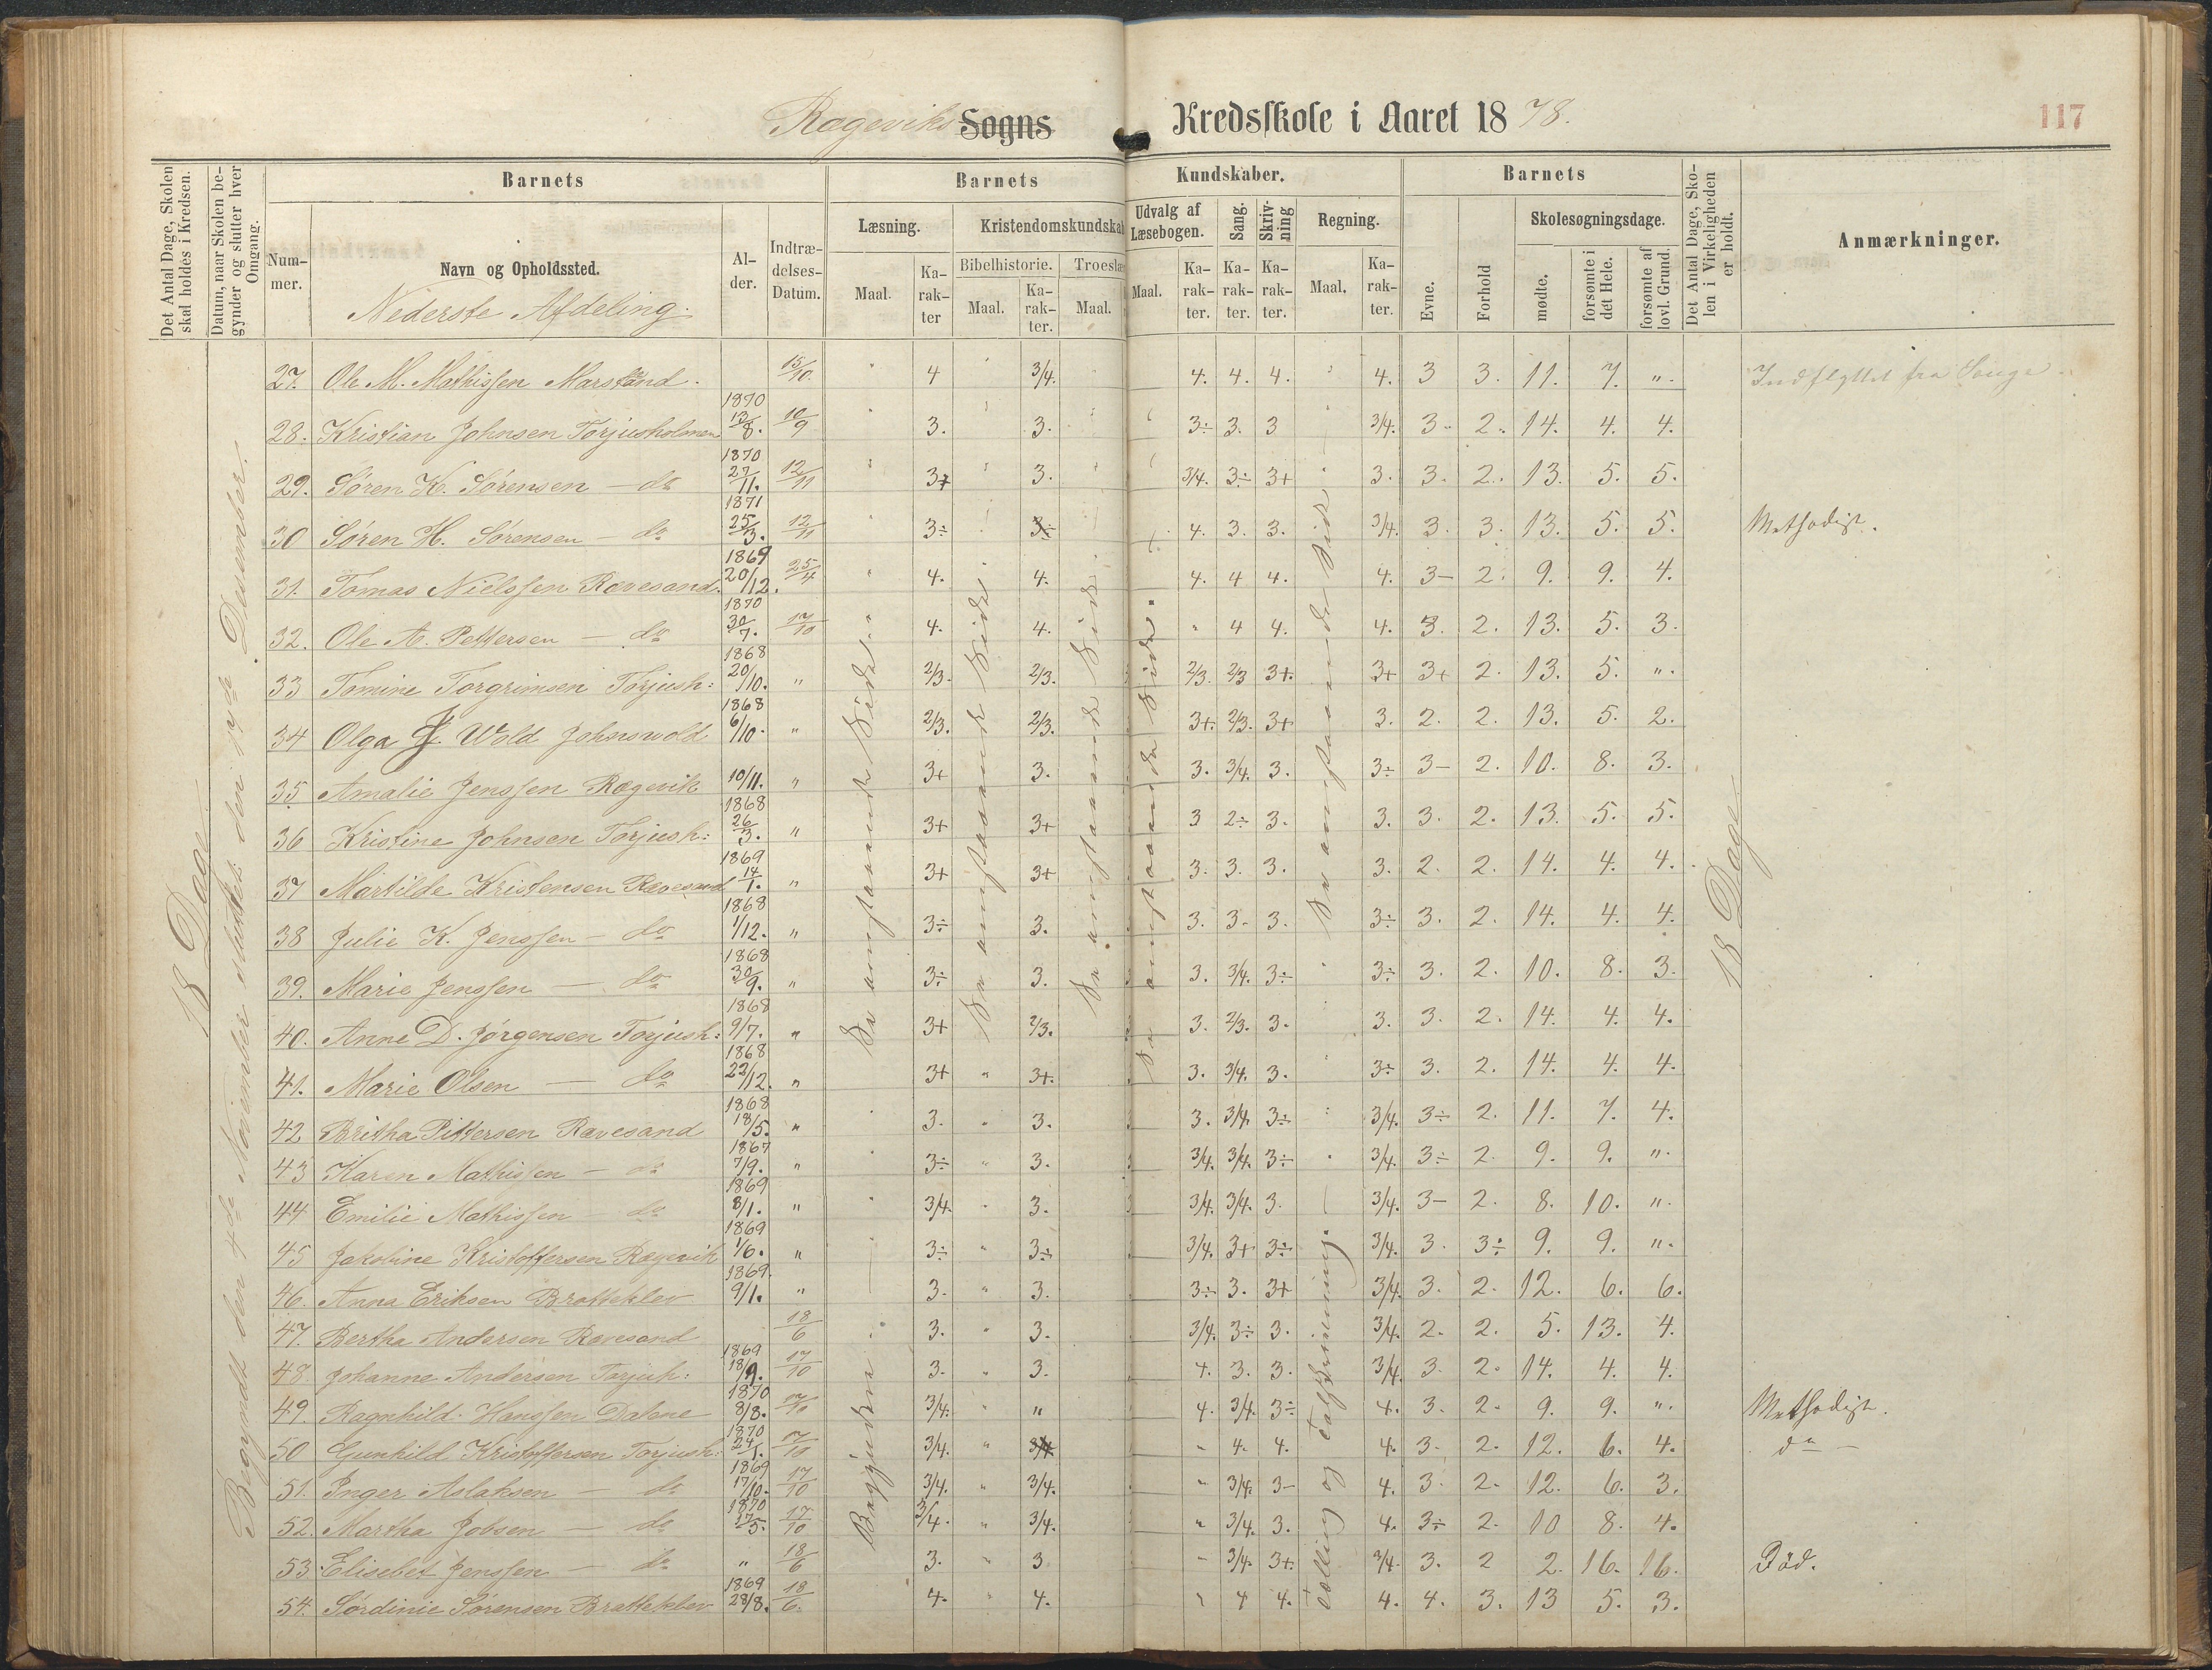 Rægeviks Sogns Kredsskole i Aaret 1878.
117
Det Antal Dage, Skolen skal holdes i Kredsen.
Datum, naar Skolen begynder og slutter hver Omgang.
Barnets
Barnets
Kundskaber.
Barnets
Det Antal Dage, Skolen i Virkeligheden er holdt.
Anmærkninger.
Nummer.
Navn og Opholdssted.
Alder.
Indtrædelses-Datum.
Læsning.
Kristendomskundskab
Udvalg af Læsebogen.
Sang.
Skrivning
Regning.
Evne.
Forhold
Skolesøgningsdage.
Maal.
Karakter
Bibelhistorie.
Troeslæ
Maal.
Karakter.
Maal.
Maal.
Karakter.
Karakter.
Karakter.
Maal.
Karakter.
mødte.
forsømte i det Hele.
forsømte af lovl. Grund.
Nederste Afdeling.
18 Dage
Begyndt den 4de November sluttet den 19de Desember.
27. Ole M. Mathissen Marstrand. 15/10. 4 3/4. 4. 4. 4. 4. 3 3. 11. 7. ". Indflyttet fra Songe.
28. Kristian Johnsen Torjusholmen 1870 13/8. 10/9 3. 3. 3÷ 3. 3 3/4. 3. 2. 14. 4. 4.
29. Søren K. Sørensen — do 1870 27/11. 12/11 3+ 3. 3/4. 3÷ 3+ 3. 3. 2. 13. 5. 5.
30 Søren H. Sørensen — do 1871 25/3. 12/11 3÷ 3÷ 4. 3. 3. 3/4. 3. 3. 13. 5. 5. Methodist.
31. Tomas Nielssen Rævesand. 1869 20/12. 25/4 4. 4. 4. 4 4. 4. 3- 2. 9. 9. 4.
32. Ole A. Pettersen — do 1870 30/7. 17/10 4. 4. " 4 4. 4. 3. 2. 13. 5. 3.
33 Tomine Torgrimsen Torjush: 1868 20/10. " 2/3. 2/3. 2/3. 2/3 3+. 3+ 3+ 2. 13. 5. ".
34 Olga J. Wold Johnswold 1868 6/10. " 2/3. 2/3. 3+. 2/3. 3+ 3. 2. 2. 13. 5. 2.
35 Amalie Jenssen Rægevik 10/11. " 3+ 3. 3. 3/4. 3. 3÷ 3- 2. 10. 8. 3.
36 Kristine Johnsen Torjush: 1868 26/3. " 3+ 3+ 3 2÷ 3. 3. 3. 2. 13. 5. 5.
37 Martilde Kristensen Rævesand 1869 14/1. " 3+ 3+ 3. 3. 3. 3. 2. 2. 14. 4. 4.
38 Julie K. Jenssen — do 1868 1/12. " 3÷ 3. 3. 3- 3. 3÷ 3. 2. 14. 4. 4.
39. Marie Jenssen — do 1868 30/9. " 3÷ 3. 3. 3/4. 3÷ 3÷ 3. 2. 10. 8. 3.
40. Anne D. Jørgensen Torjush: 1868 9/7. " 3+ 2/3. 3. 2/3. 3. 3. 3. 2. 14. 4. 4.
41. Marie Olsen — do 1868 22/12. " 3+ " 3+. 3. 3/4. 3. 3÷ 3. 2. 14. 4. 4.
42 Britha Pittersen Rævesand 1868 18/5. " 3. " 3. 3. 3/4. 3÷ 3/4. 3÷ 2. 11. 7. 4.
43 Karen Mathissen — do 1867 7/9. " 3÷ " 3. 3/4. 3/4. 3÷ 3/4. 3÷ 2. 9. 9. ".
44 Emilie Mathissen do 1869 8/1. " 3/4. " 3. 3/4. 3/4. 3. 3/4. 3- 2. 8. 10. ".
45 Jakobine Kristoffersen Rægevik 1869 1/6. " 3÷ " 3÷ 3/4. 3+ 3÷ 3/4. 3. 3÷ 9. 9. ".
46. Anna Eriksen Bratteklev 1869. 9/1. " 3. " 3. 3÷ 3. 3+ 3/4. 3. 2. 12. 6. 6.
47. Bertha Andersen Rævesand 18/6 3. " 3. 3/4. 3÷ 3. 3/4. 2. 2. 5. 13. 4.
48. Johanne Andersen Torjuh: 1869 18/9. 17/10 3. " 3. 4. 3. 3. 3/4. 3. 2. 14. 4. 4.
49. Ragnhild Hanssen Dalene 1870 8/8. 17/10 3/4. " " 4. 3/4. 3÷ 4. 3. 2. 9. 9. ". Methodist.
50 Gunhild Kristoffersen Torjush: 1870 24/1. 17/10 3/4. " 3/4. " 4. 4. 4. 3. 2. 12. 6. 4. do —
51. Inger Aslaksen — do 1869 17/10. 17/10 3/4. " 3/4. " 3/4. 3- 4. 3. 2. 12. 6. 3.
52. Martha Jobsen — do 1870 17/5. 17/10 3/4. " 3/4. " 3/4. 3. 4. 3÷ 2. 10 8. 4.
53. Elisebet Jenssen — do " 18/6 3. " 3 " 3/4. 3+. 3/4. 3. 2 2. 16. 16. Død.
54. Sørdinie Sørensen Bratteklev 1869 28/8. 18/6. 4. " 4. " 4 4. 4. 4. 3. 13 5. 3.
Se omstaaende Side
Se omstaaende Side.
Se omstaaende Side.
Se omstaaende Side.
Se omstaaende Side.
Tælling og Talskrivning.
18 Dage